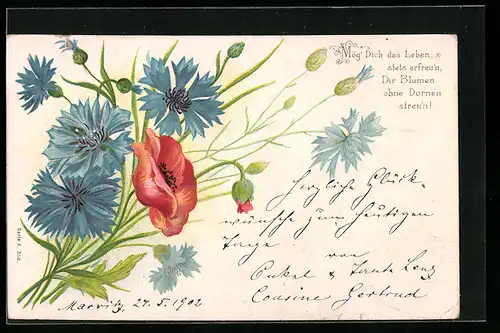 Mög' Dich das Leben
stets erfreu'n,
Dir Blumen
ohne Dornen
streu'n!
Herzliche Glück-
wünsche zum heutigen
Tage
von
Onkel & Tante Lenz
Cousine Gertrud
Marwitz, 27.5.1902
Serie F.